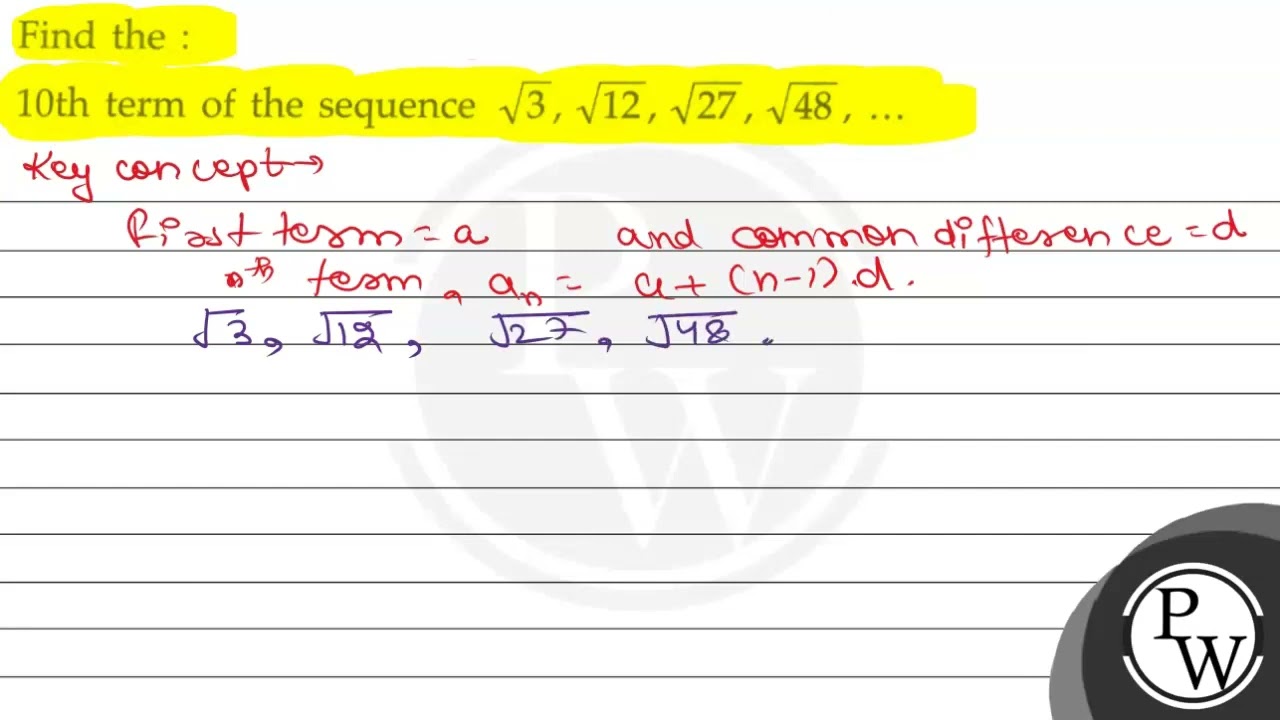 Find the :
10th term of the sequence √3, √12, √27, √48, ...
Key concept→
First term = a and common difference = d
nth term, aₙ = a + (n-1).d.
√3, √12, √27, √48 .
P
W
P
W